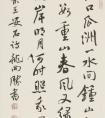 口瓜洲一水間鍾
數重山春風又綠
岸明月何時照我
王安石詩 勝書